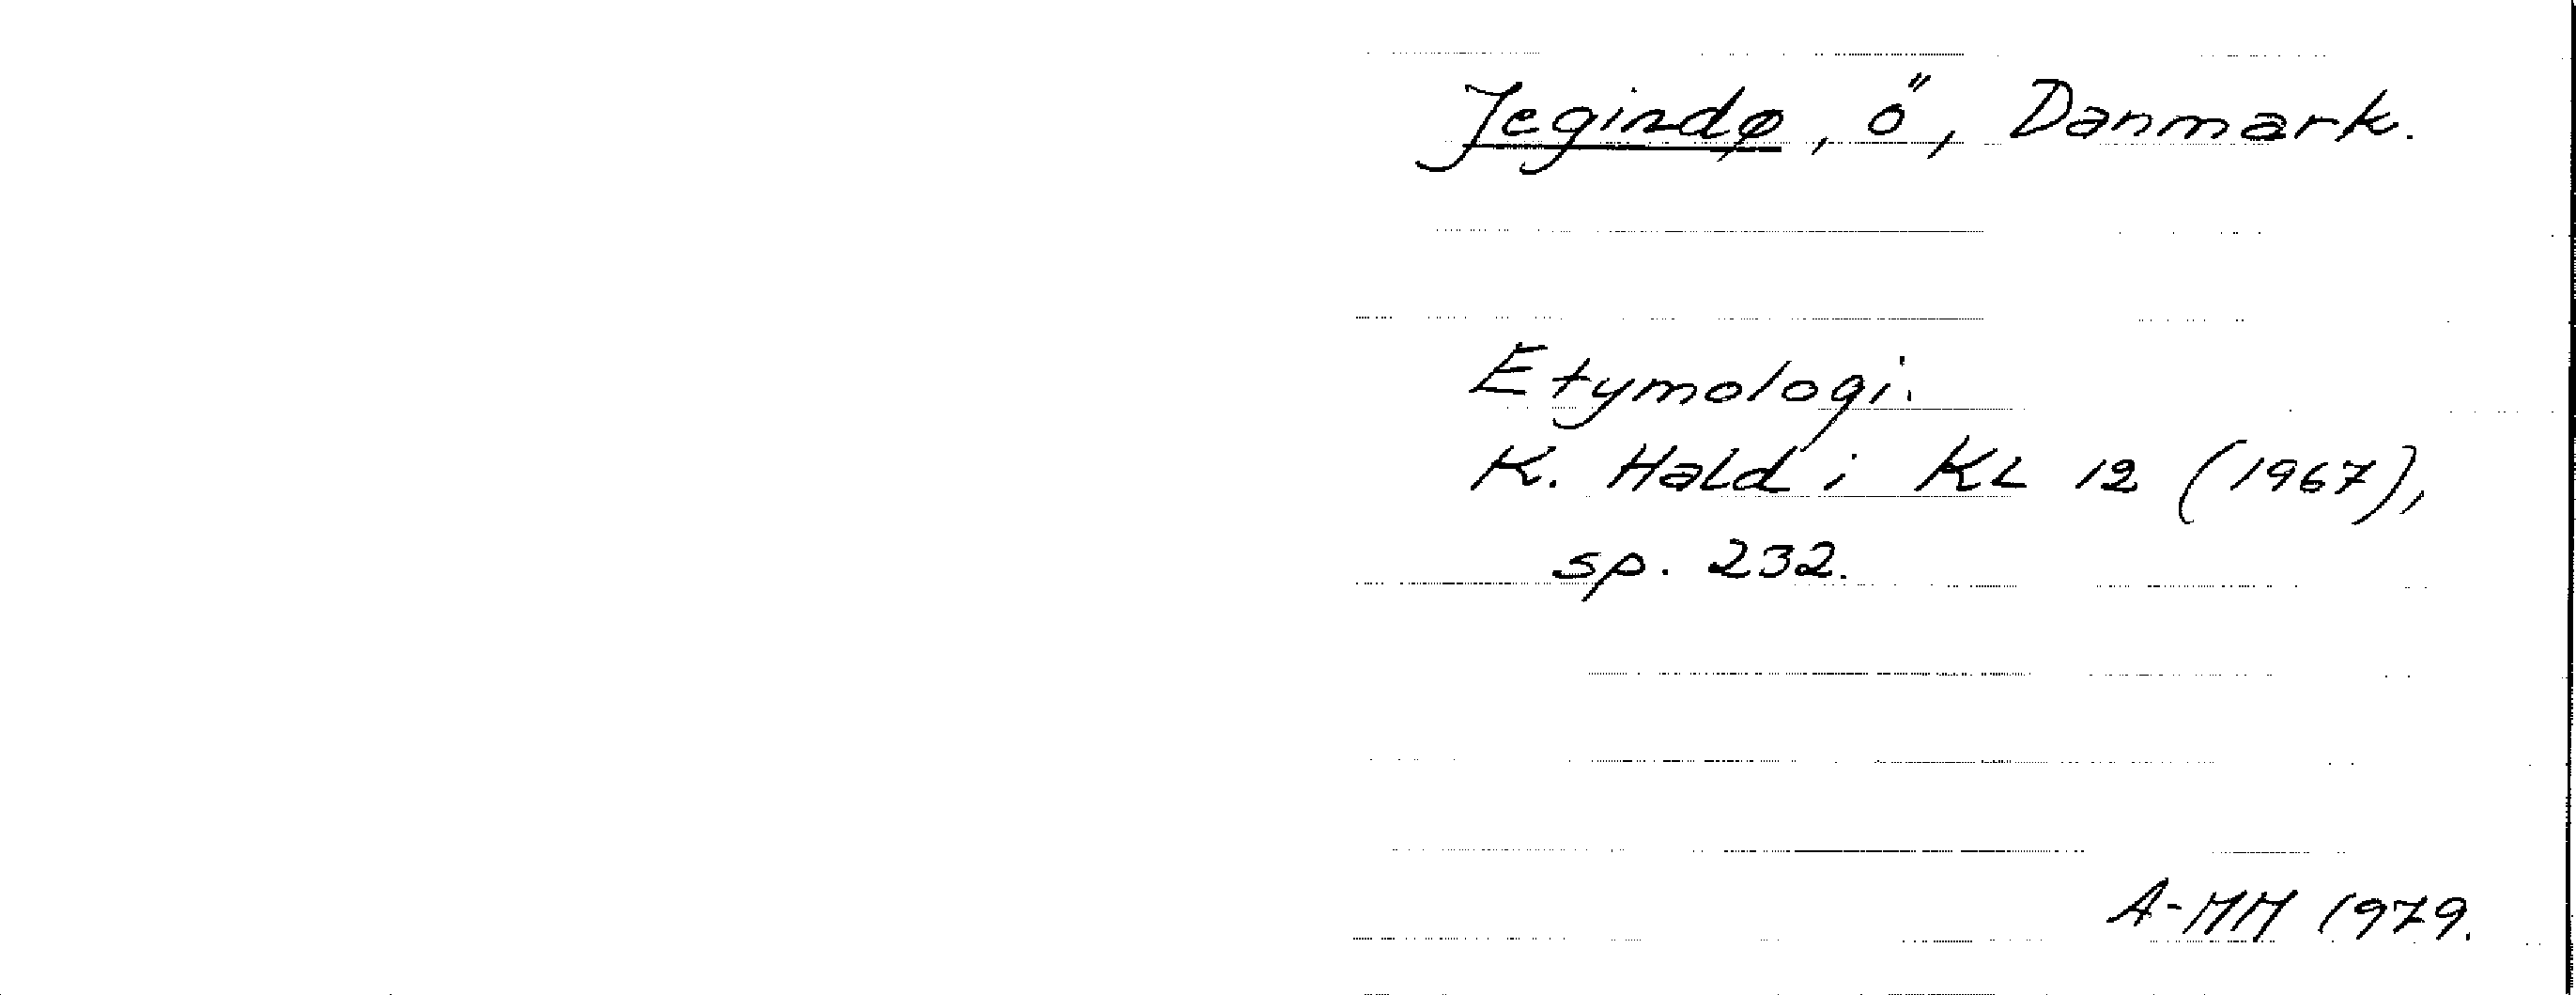 Jegindø, ö, Danmark.
Etymologi.
K. Hald i KL 12 (1967),
sp. 232.
A-MM 1979.